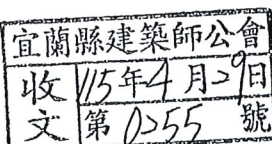 宜蘭縣建築師公會
收文 115年4月29日
第0255號